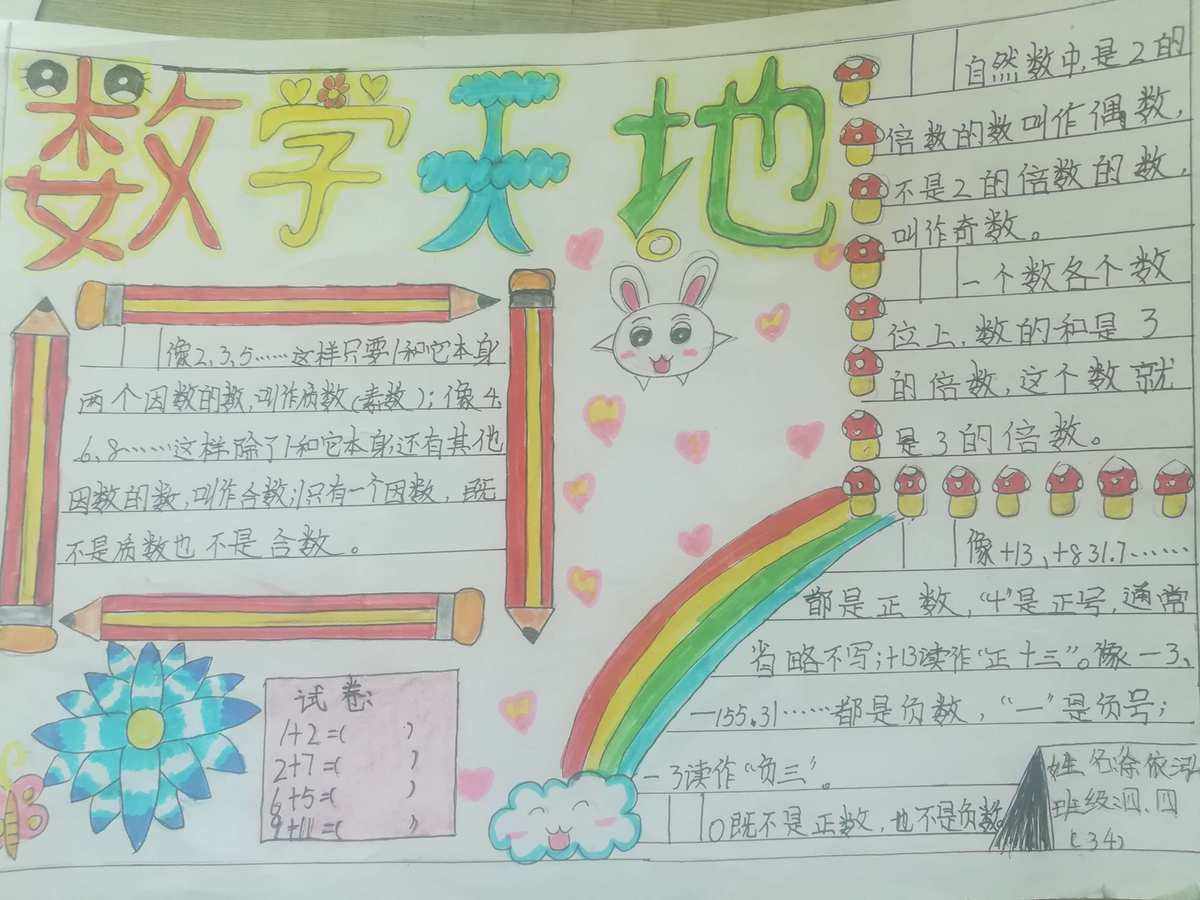 数学天地
像2、3、5……这样只要1和它本身
两个因数的数,叫作质数(素数);像4、
6、8……这样除了1和它本身还有其他
因数的数,叫作合数;1只有一个因数,既
不是质数也不是合数。
试卷:
1+2=( )
2+7=( )
6+5=( )
9+11=( )
自然数中,是2的
倍数的数叫作偶数,
不是2的倍数的数,
叫作奇数。
一个数各个数
位上,数的和是3
的倍数,这个数就
是3的倍数。
像+13、+831.7……
都是正数,“+”是正号,通常
省略不写;+13读作“正十三”。像-3、
-155.31……都是负数,“-”是负号;
-3读作“负三”。
0既不是正数,也不是负数
姓名徐依泓
班级:四、四
(34)